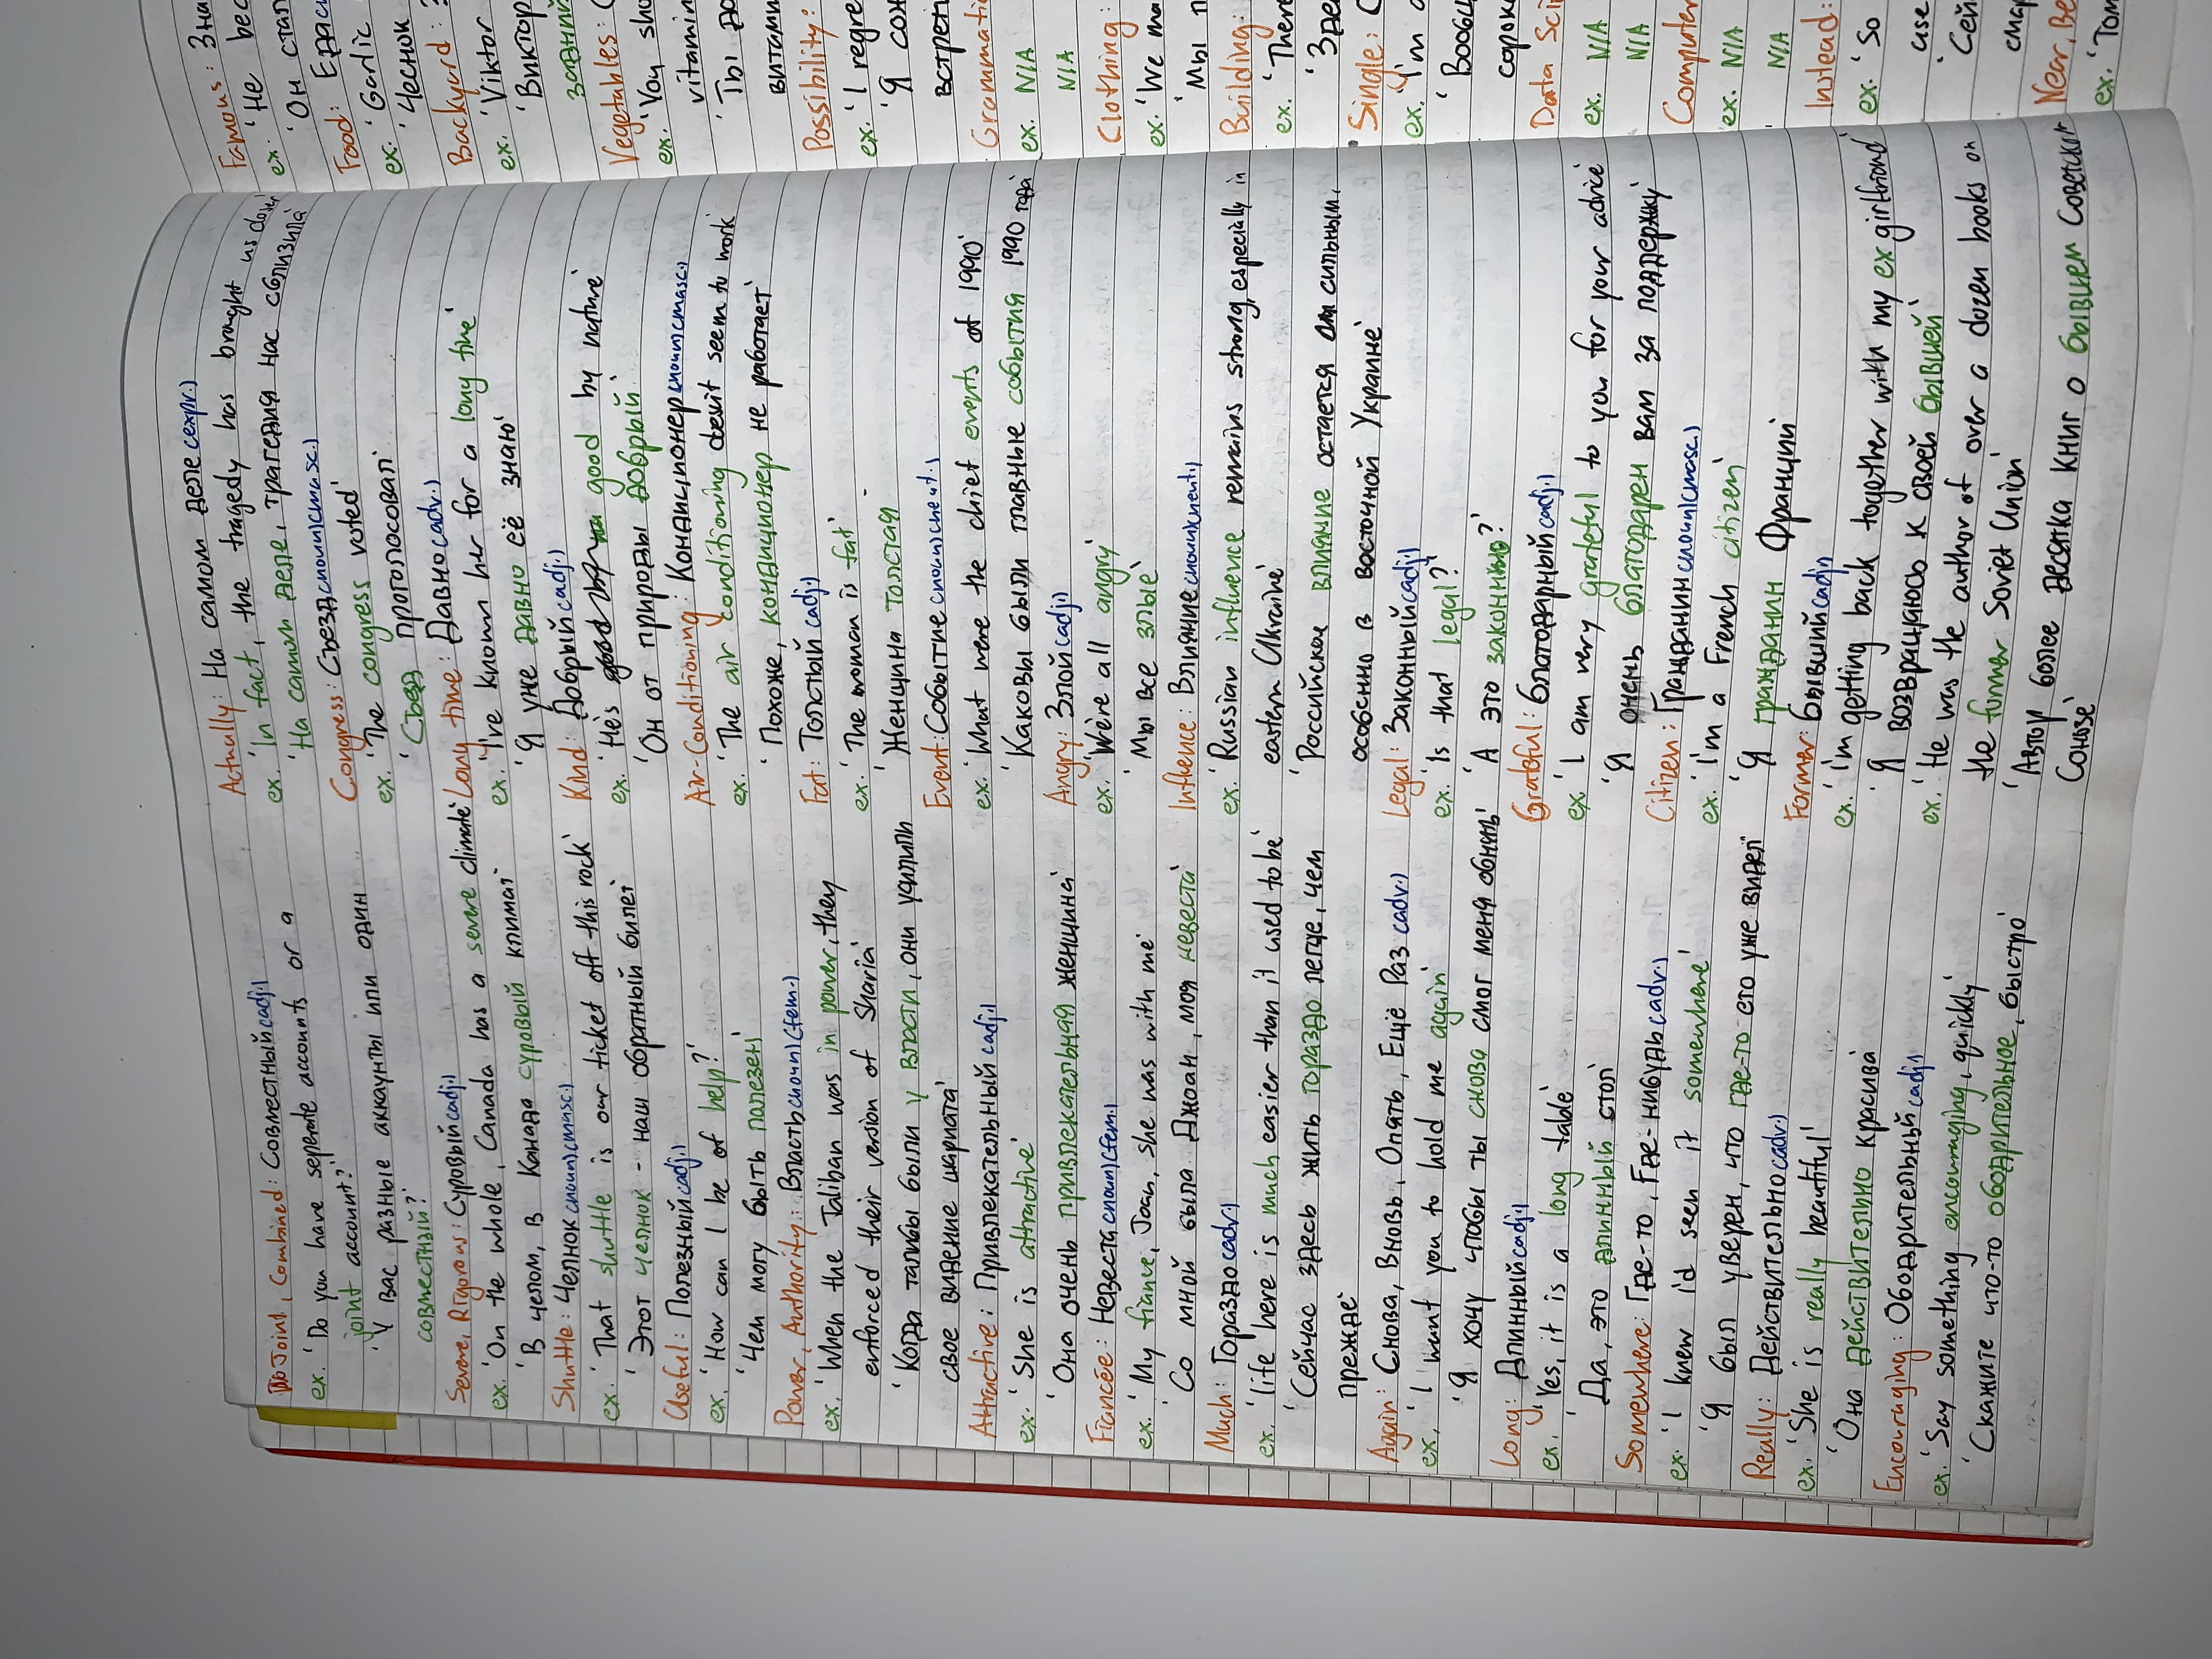 Joint, Combined: Совместный(adj.)
ex. 'Do you have seperate accounts or a
joint account?'
'У вас разные аккаунты или один
совместный?'
Severe, Rigorous: Суровый(adj.)
ex. 'On the whole, Canada has a severe climate'
'В целом, в Канада суровый климат'
Shuttle: Челнок(noun)(masc.)
ex. 'That shuttle is our ticket off this rock'
'Этот челнок - наш обратный билет'
Useful: Полезный(adj.)
ex. 'How can I be of help?'
'Чем могу быть полезен'
Power, Authority: Власть(noun)(fem.)
ex. 'When the Taliban was in power, they
enforced their version of Sharia'
'Когда талибы были у власти, они усилили
свое видение шариата'
Attractive: Привлекательный(adj.)
ex. 'She is attractive'
'Она очень привлекательная женщина'
Fiancée: Невеста(noun)(fem.)
ex. 'My fiance, Joan, she was with me'
'Со мной была Джоан, моя невеста'
Much: Гораздо(adv.)
ex. 'life here is much easier than it used to be'
'Сейчас здесь жить гораздо легче, чем
прежде'
Again: Снова, Вновь, Опять, Ещё Раз(adv.)
ex. 'I want you to hold me again'
'Я хочу чтобы ты снова смог меня обнять'
Long: Длинный(adj.)
ex. 'Yes, it is a long table'
'Да, это длинный стол'
Somewhere: Где-то, Где-нибудь(adv.)
ex. 'I knew i'd seen it somewhere'
'Я был уверен, что где-то его уже видел'
Really: Действительно(adv.)
ex. 'She is really beautiful'
'Она действително красива'
Encouraging: Ободрительный(adj.)
ex. 'Say something encouraging, quickly'
'Скажите что-то ободрительное, быстро'
Actually: На самом деле(expr.)
ex. 'In fact, the tragedy has brought us closer'
'На самом деле, трагедия нас сблизила'
Congress: Съезд(noun)(masc.)
ex. 'The congress voted'
'Съезд проголосовал'
Long time: Давно(adv.)
ex. 'I've known her for a long time'
'Я уже давно её знаю'
Kind: Добрый(adj.)
ex. 'He's good by nature'
'Он от природы добрый'
Air-Conditioning: Кондиционер(noun)(masc.)
ex. 'The air conditioning doesn't seem to work'
'Похоже, кондиционер не работает'
Fat: Толстый(adj.)
ex. 'The woman is fat'
'Женщина толстая
Event: Событие(noun)(neut.)
ex. 'What were the chief events of 1990'
'Каковы были главные события 1990 года'
Angry: Злой(adj.)
ex. 'We're all angry'
'Мы все злые'
Influence: Влияние(noun)(neut.)
ex. 'Russian influence remains strong, especially in
eastern Ukraine'
'Российское влияние остается сильным,
особенно в восточной Украине'
Legal: Законный(adj.)
ex. 'Is that legal?'
'А это законно?'
Grateful: Благодарный(adj.)
ex. 'I am very grateful to you for your advice'
'Я очень благодарен вам за поддержку'
Citizen: Гражданин(noun)(masc.)
ex. 'I'm a French citizen'
'Я гражданин Франции'
Former: Бывший(adj.)
ex. 'I'm getting back together with my ex girlfriend'
'Я возвращаюсь к своей бывшей'
ex. 'He was the author of over a dozen books on
the former Soviet Union'
'Автор более десятка книг о бывшем Советском
Союзе'
Famous: Зна
ex. 'He bec
'Он стал
Food: Еда
ex. 'Garlic
'Чеснок
Backyard:
ex. 'Viktor
'Виктор
задний
Vegetables:
ex. 'You sho
vitamin
'Ты до
витами
Possibility:
ex. 'I regre
'Я сож
встреч
Grammati
ex. N/A
N/A
Clothing:
ex. 'We ma
'Мы п
Building:
ex. 'There
'Здес
Single:
ex. 'I'm
'Вообщ
сорок
Data Sci
ex. N/A
N/A
Computer
ex. N/A
N/A
Instead:
ex. 'So
use
'Сей
сма
Near, Be
ex. 'Tom